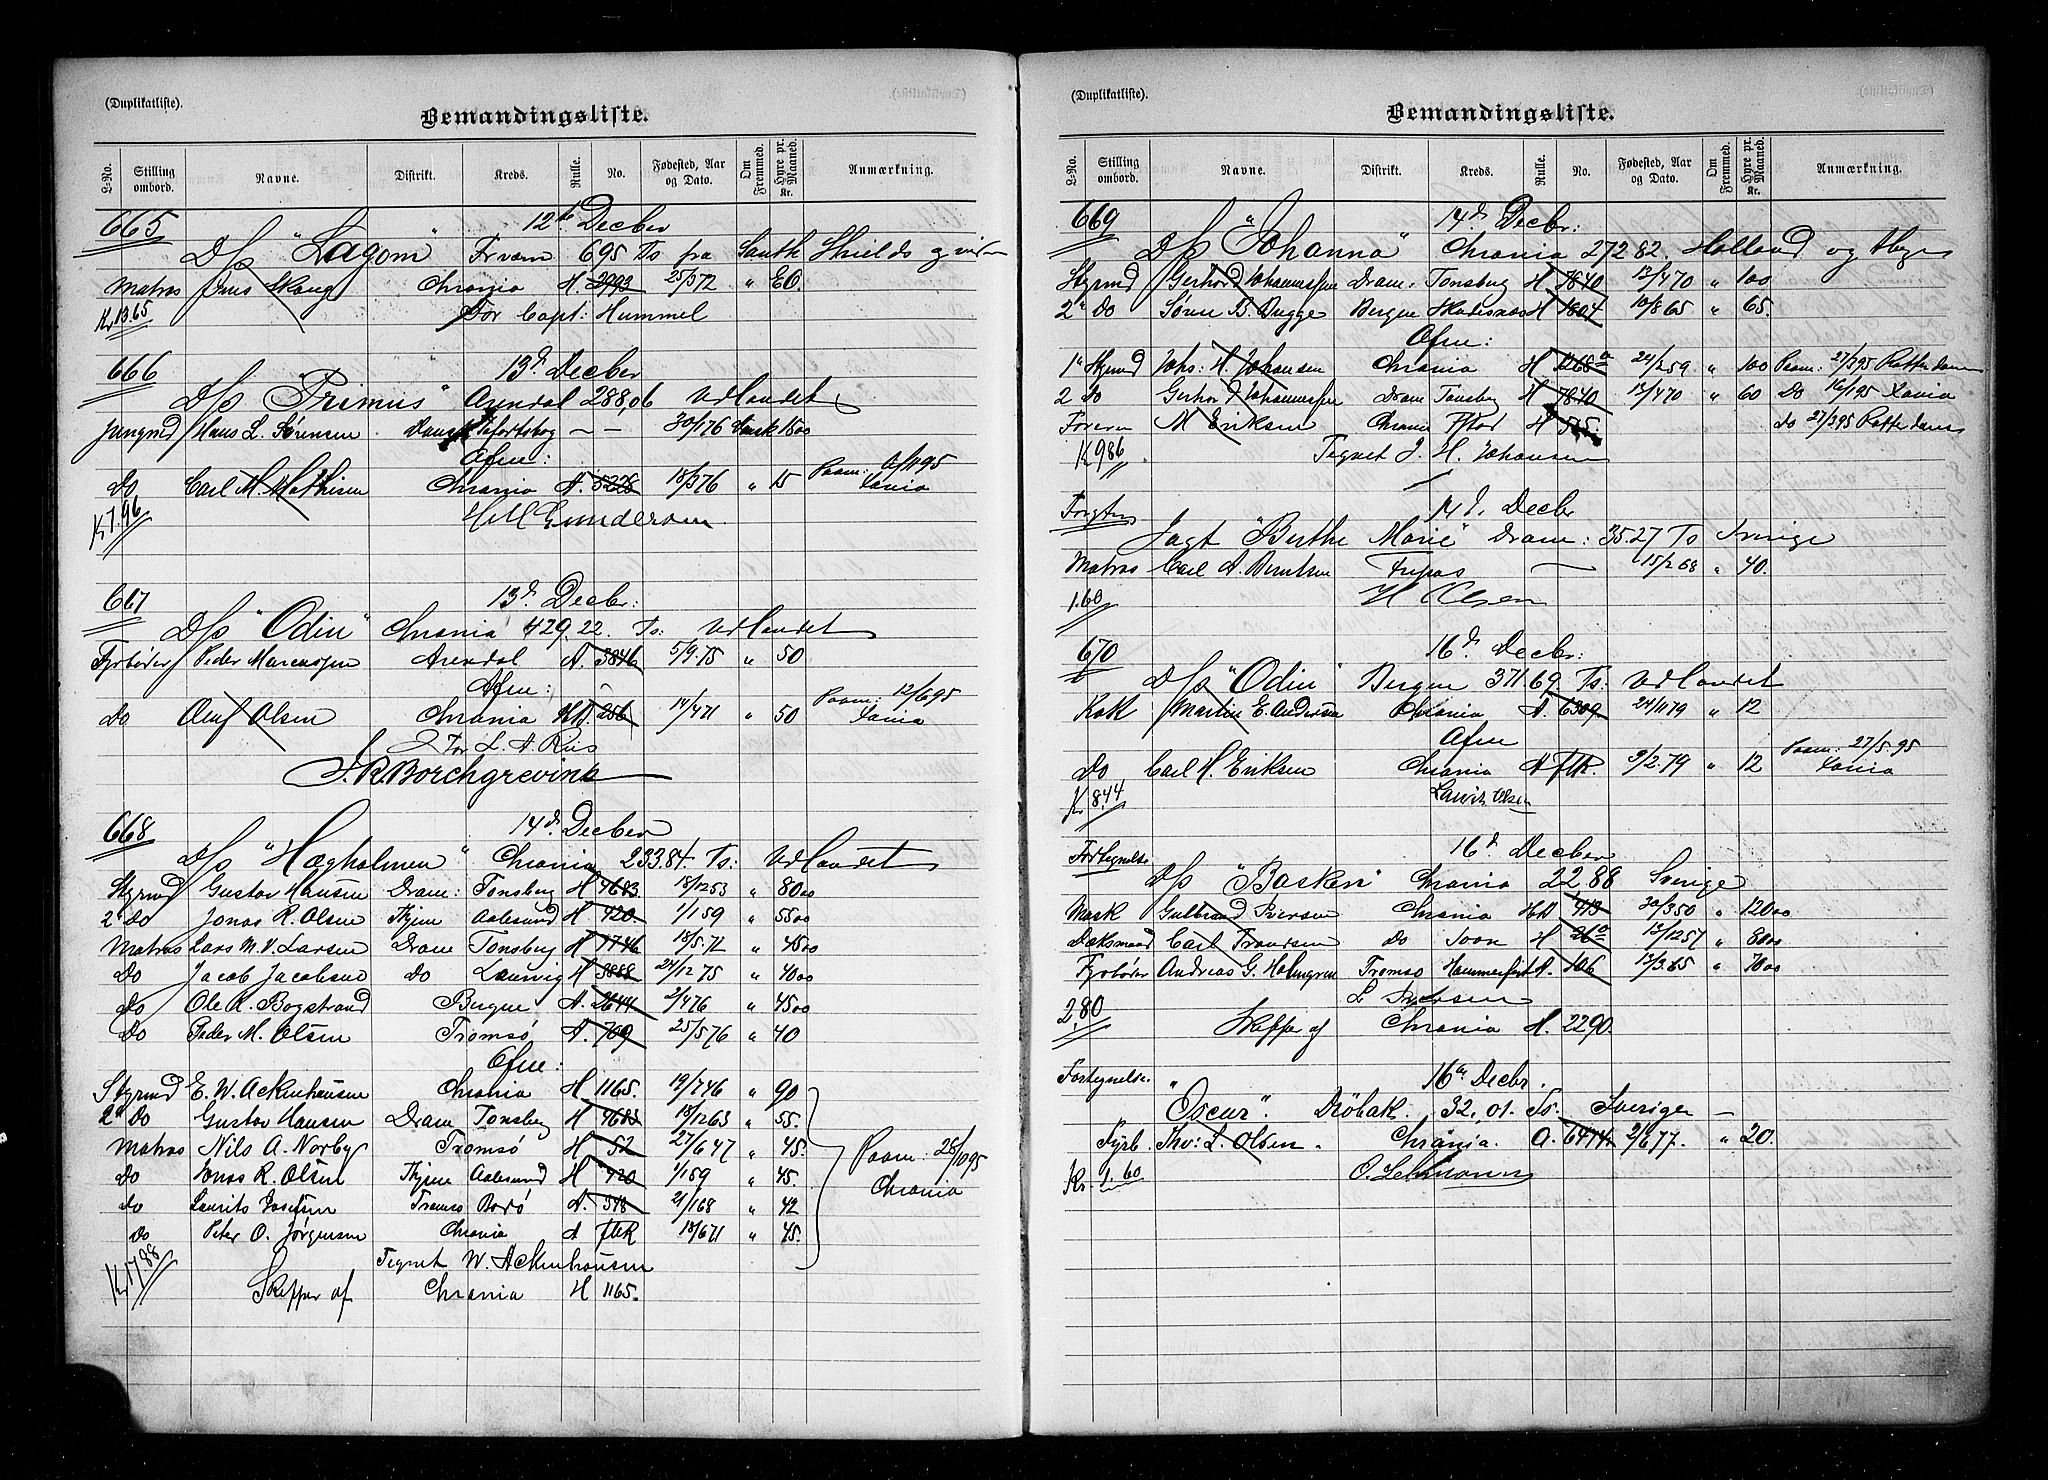 (Duplikatliste).
Bemandingsliste.
L-No. Stilling ombord. Navne. Distrikt. Kreds. Rulle. No. Fødested, Aar og Dato. Om Fremmed. Hyre pr. Maaned. Kr. Anmærkning.
665 12te Decber
D/s "Lagom" 695 Ts fra South Shields
Matros Skoug Chrania H. 2993 25/3 72 " 60.
Kr 13.65 For Capt: Hummel
666 13d Decber
D/s "Primus" Arendal 288,06 Udlandet
Jungmd Hans L. Sørensen Dansk — — 30/1 76 Dansk 15 00
Afm:
Do Carl M. Mathisen Chrania A. 5228 18/3 76 " 15 Paam:
Xania
Kr 7.96 H M Gundersen
667 13d Decbr:
D/s "Odin" Chrania 429,22. Ts: Udlandet
Fyrbøder Peder Marcussen Arendal A. 3846 5/9.75 " 50
Afm:
Do Oluf Olsen Chrania HD 256 14/4 71 " 50 Paam: 12/6 95
Xania
For L. A. Riis
J. R. Borchgrevink
668 14d Decber
D/s "Hægholmen" Chrania 233.84. Ts: Udlandet
Styrmd Gustav Hansen Dram: Tønsberg H 4683 18/12 53 " 80 00
2d Do Jonas R. Olsen Thjem Aalesund H 420 1/1 59 " 55 00
Matros Lars M. V. Larsen Dram Tønsberg H 1746 18/5.72 " 45 00
Do Jacob Jacobsen Do Laurvig H 3888 24/12 75 " 40 00
Do Ole K. Bogstrand Bergen A. 2644 2/4 76 " 45 00
Do Peder M. Olsen Tromsø A. 709 25/5 76 " 40
Afm:
Styrmd E. W. Ackenhausen Chrania H. 1165. 19/7 46 " 90
2d Do Gustav Hansen Dram Tønsberg H 4683 18/12 63 " 55.
Matros Nils A. Norby Tromsø H 52 27/6 47 " 45.
Paam: 26/10 95
Do Jonas R. Olsen Thjem Aalesund H 420 1/1 59 " 45.
Chrania
do Laurits Josefsen Tromsø Bodø A. 318 21/1 68 " 42
Do Peter O. Jørgensen Chrania A ftk 18/6 71 " 45.
Kr 17.88 Tegnet W. Ackenhausen
Skipper af Chrania H 1165.
(Duplikatliste).
Bemandingsliste.
L-No. Stilling ombord. Navne. Distrikt. Kreds. Rulle. No. Fødested, Aar og Dato. Om Fremmed. Hyre pr. Maaned. Kr. Anmærkning.
669 14d Decbr:
D/s "Johanna" Chrania 272 82. Holland og
Styrmd Gerhard Johannessen Dram. Tønsberg H 7840 12/4 70 " 100
2d Do Søren B. Bugge Bergen H 1804 10/8 65 " 65.
Afm:
1ste Styrmd Johs: H. Johansen Chrania H 1268a 24/2 59 " 100 Paam: 27/3 95 Rotterdam
2 Do Gerhar J Johannessen Dram Tønsberg H 7840 12/4 70 " 60 Do 16/1 95 Xania
M Eriksen Chrania H 515. Do 27/3 95 Rotterdam
Kr 9,86 Tegnet J. H. Johansen
14d. Decbr
Jagt "Berthe Marie" Dram: 35.27 Ts Sverige
Matros Carl A. Berntsen — 15/2 68 " 40.
1.60 H Olsen
670 16d Decbr:
D/s "Odin" Bergen 371.69. Ts: Udlandet
Kok Martin E. Andersen Chrania A. 6309 24/11 79 " 12
Afm
Do Carl H. Eriksen Chrania A ftk. 9/2.79 " 12 Paam: 27/5.95
Xania
Kr 8.44 Lauritz Olsen
Fortegnelse 16d Decber
D/s "Basken" Chrania 22,88 Sverige
Mask Gulbrand Iversen Chrania HD 413 30/3 50 " 120 00
Dæksmand Carl Frandsen Do Soon H 26a 12/12 57 " 80 00
Fyrbøder Andreas G. Holmgren Tromsø Hammerfest A. 106 12/3.65 " 70 00
L Iversen
2,80 Skipper af Chrania H. 2290.
Fortegnelse 16de Decbr.
"Oscar". Drøbak. 32,01. Ts. Sverige —
Fyrb. Thv: L. Olsen. Chrania. A. 6474 2/6 77. " 20.
Kr. 1.60 O. Lehmann